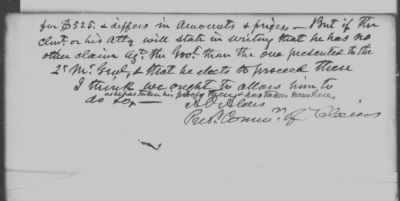 for $525. & differs in amounts & prices — But if the
Clmt. or his Atty will state in writing that he has no
other claim agt. the Govt. than the one presented to the
2r. Mr. Genl, & that he elects to proceed there
I think we ought to allow him to
do so, —
A O Aldis
Pres. Commrs. of Claims